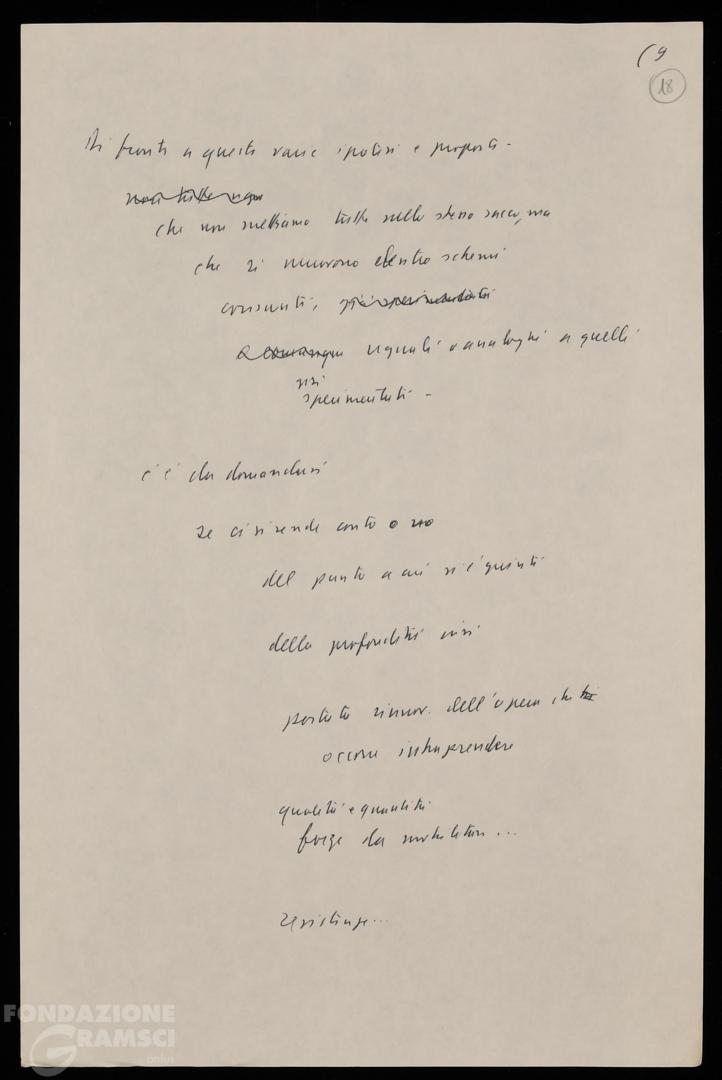 (9
18
Di fronte a queste varie ipotesi e proposte -
che non mettiamo tutte nello stesso sacco, ma
che si muovono dentro schemi
consunti,
uguali o analoghi a quelli
già
sperimentati -
c'è da domandarsi
se ci si rende conto o no
del punto a cui si è giunti
della profondità crisi
portata rinnov. dell'opera che
occorre intraprendere
qualità e quantità
forze da mobilitare...
resistenze...
FONDAZIONE
GRAMSCI
onlus